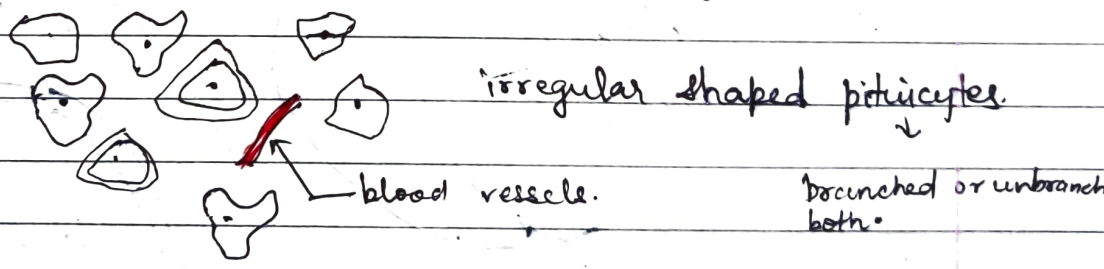 irregular shaped pituicytes.
blood vessels.
branched or unbranch
both.